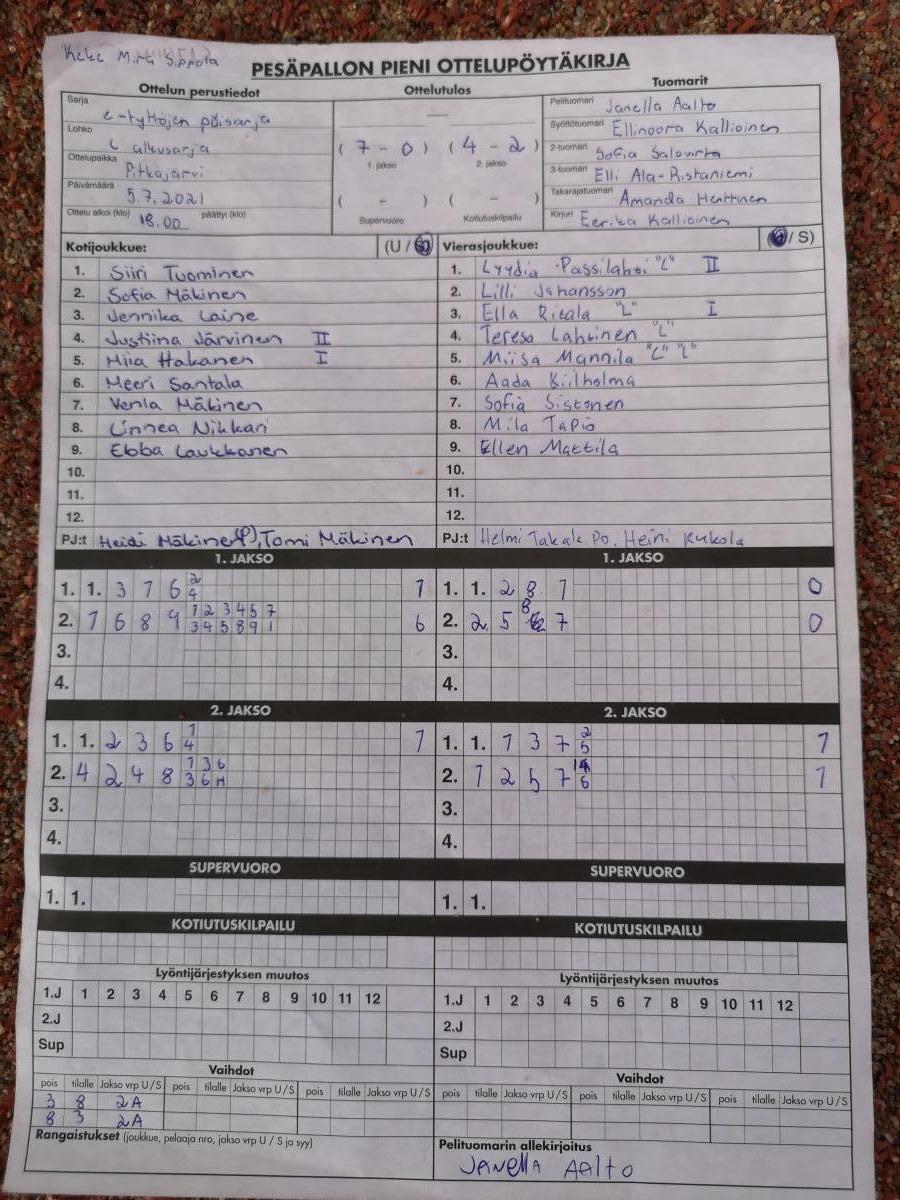 Keke Matti Sippola
PESÄPALLON PIENI OTTELUPÖYTÄKIRJA
Ottelun perustiedot
Sarja e-tyttöjen pöisarja
Lohko C alkusarja
Ottelupaikka Pitkäjärvi
Päivämäärä 5.7.2021
Ottelu alkoi (klo) 18.00 päättyi (klo)
Ottelutulos
( 7 - 0 ) ( 4 - 2 )
1. jakso 2. jakso
( - ) ( - )
Supervuoro Kotiutuskilpailu
Tuomarit
Pelituomari Janella Aalto
Syöttötuomari Ellinoora Kallioinen
2-tuomari Sofia Salovirta
3-tuomari Elli Ala-Ristaniemi
Takarajatuomari Amanda Henttinen
Kirjuri Eerika Kallioinen
Kotijoukkue: (U /
1. Siiri Tuominen
2. Sofia Mäkinen
3. Jennika Laine
4. Justiina Järvinen II
5. Miia Hakanen I
6. Meeri Santala
7. Venla Mäkinen
8. Linnea Nikkari
9. Ebba Laukkanen
10.
11.
12.
PJ:t Heidi Mäkinen(P), Tomi Mäkinen
Vierasjoukkue: / S)
1. Lyydia Passilahti "L" II
2. Lilli Johansson
3. Ella Ritala "L" I
4. Teresa Lahtinen "L"
5. Miisa Mannila "L" "L"
6. Aada Kiilholma
7. Sofia Sistonen
8. Mila Tapio
9. Ellen Mattila
10.
11.
12.
PJ:t Helmi Takala Po, Heini Kukola
1. JAKSO
1. 1. 3 7 6 2 1
4
2. 7 6 8 9 1 2 3 4 5 7 6
3 4 5 8 9 1
3.
4.
1. JAKSO
1. 1. 2 8 7 0
2. 2 5 8 7 0
3.
4.
2. JAKSO
1. 1. 2 3 6 1 1
4
2. 4 2 4 8 1 3 6
3 6
3.
4.
2. JAKSO
1. 1. 1 3 7 2 1
5
2. 1 2 5 7 1
6
3.
4.
SUPERVUORO
1. 1.
SUPERVUORO
1. 1.
KOTIUTUSKILPAILU
KOTIUTUSKILPAILU
Lyöntijärjestyksen muutos
1.J 1 2 3 4 5 6 7 8 9 10 11 12
2.J
Sup
Lyöntijärjestyksen muutos
1.J 1 2 3 4 5 6 7 8 9 10 11 12
2.J
Sup
Vaihdot
pois tilalle Jakso vrp U/S pois tilalle Jakso vrp U/S pois tilalle Jakso vrp U/S
3 8 2A
8 3 2A
Vaihdot
pois tilalle Jakso vrp U/S pois tilalle Jakso vrp U/S pois tilalle Jakso vrp U/S
Rangaistukset (joukkue, pelaaja nro, jakso vrp U / S ja syy)
Pelituomarin allekirjoitus
Janella Aalto